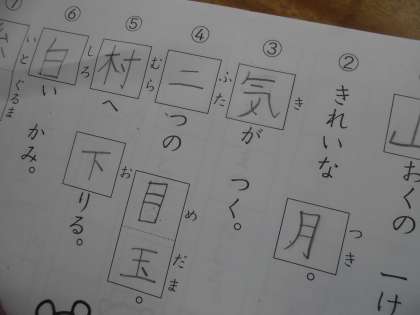 おくの 一け
②
きれいな 月。
つき
③
気が つく。
き
④
二つの 目玉。
ふた めだま
⑤
村へ 下りる。
むら お
⑥
白い かみ。
しろ
⑦
いとぐるま